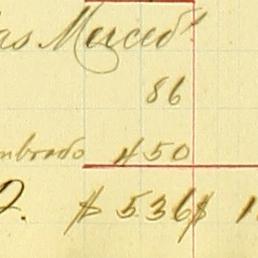 as Merced
86
mbrado 450
2. $ 536 $ 1